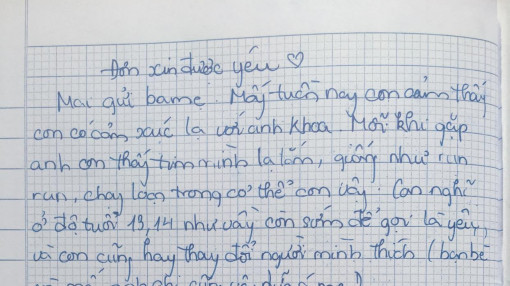 Đơn xin được yêu ♡
Mai gửi ba mẹ. Mấy tuần nay con cảm thấy
con có cảm xúc lạ với anh Khoa. Mỗi khi gặp
anh con thấy tim mình lạ lắm, giống như run
run, chạy loạn trong cơ thể con vậy. Con nghĩ
ở độ tuổi 13, 14 như vậy còn sớm để gọi là yêu,
và con cũng hay thay đổi người mình thích (bạn bè